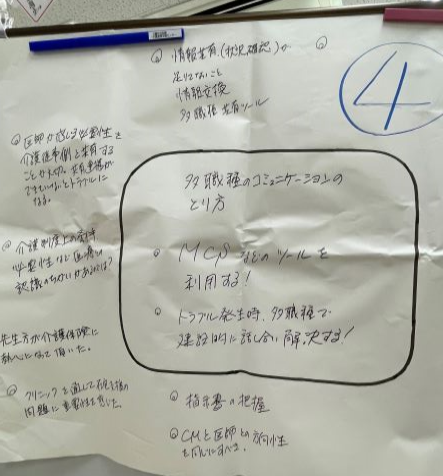 ◎ 情報共有(状況確認)が
足りてないこと
情報交換
多職種共有ツール
◎
④
◎ 医師が感じる必要性を
介護従事側と共有する
ことが大切。共有
できていないとトラブルに
なる。
多職種のコミュニケーションの
とり方
◎ MCSなどのツールを
利用する!
◎ トラブル発生時、多職種で
建設的に話し合い解決する!
◎ 介護制度上の
必要性など医療の
認識のちがいがあるのでは?
先生方が介護保険に
熱心になって頂いた。
◎ クリニックを通して在宅
問題に重要性を感じた。
◎ 指示書の把握
◎ CMと医師との方向性
を同じにすべき。